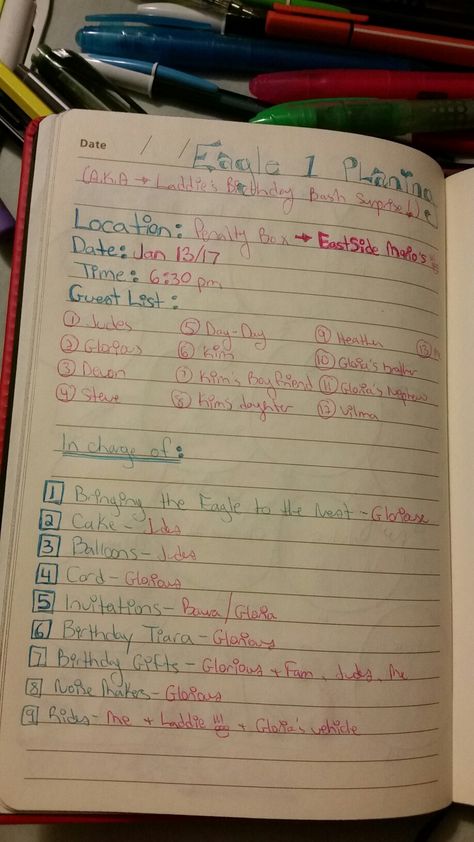 Date / / Eagle 1 Planing
(A.K.A → Laddie's Birthday Bash Surprise!)
Location: Penalty Box → EastSide Mario's
Date: Jan 13/17
Time: 6:30 pm
Guest List:
① Judes ⑤ Day-Day ⑨ Heather ⑬
② Glorious ⑥ Kim ⑩ Gloria's brother
③ Devon ⑦ Kim's Boyfriend ⑪ Gloria's Nephew
④ Steve ⑧ Kims daughter ⑫ Vilma
In charge of:
1 Bringing the Eagle to the Nest - Gloriouse
2 Cake - Judes
3 Balloons - Judes
4 Card - Glorious
5 Invitations - Bawa/Gloria
6 Birthday Tiara - Glorious
7 Birthday Gifts - Glorious + Fam, Judes, Me
8 Noise Makes - Glorious
9 Rides - Me + Laddie + Gloria's vehicle